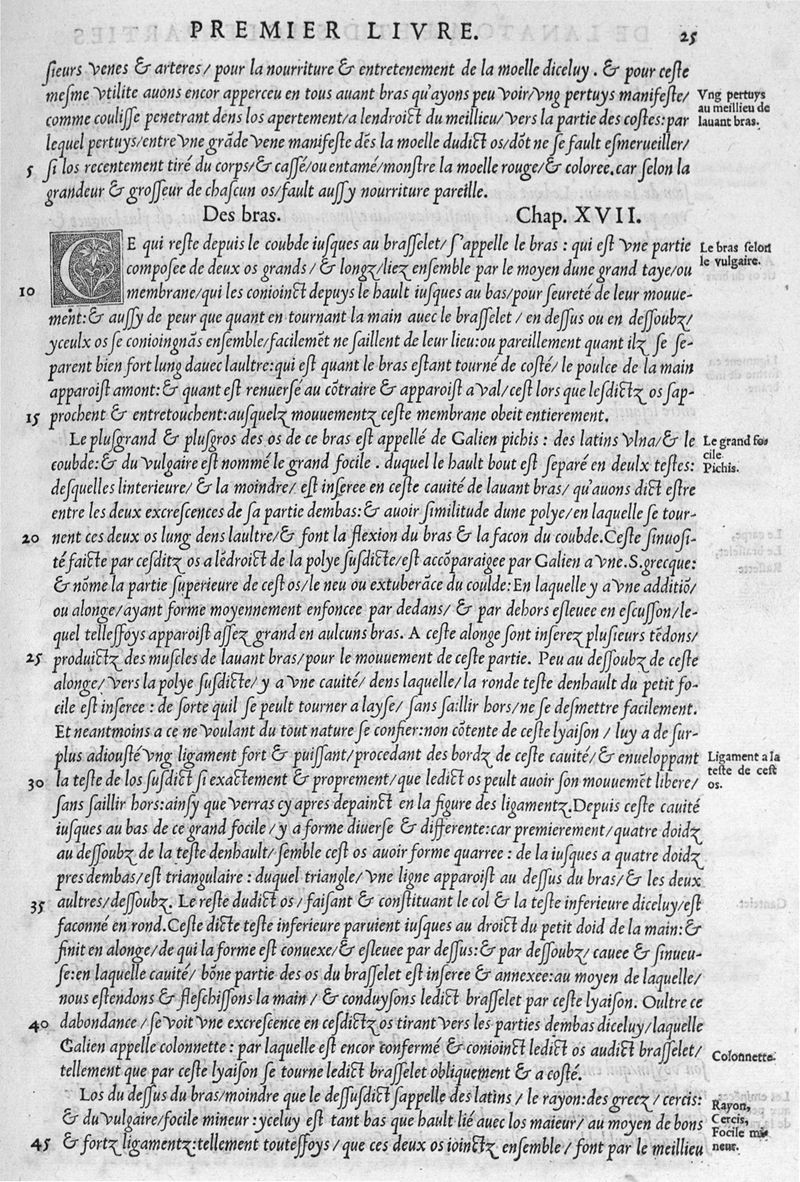 PREMIER LIVRE. 25
sieurs venes & arteres/ pour la nourriture & entretenement de la moelle diceluy . & pour ceste
mesme vtilite auons encor apperceu en tous auant bras qu'ayons peu voir/vng pertuys manifeste/
Vng pertuys
au meillieu de
lauant bras.
comme coulisse penetrant dens los apertement/a lendroict du meillieu/vers la partie des costes:par
lequel pertuys/entre vne grãde vene manifeste dẽs la moelle dudict os/dõt ne se fault esmerueiller/
5 si los recentement tiré du corps/& cassé/ou entamé/monstre la moelle rouge/& coloree.car selon la
grandeur & grosseur de chascun os/fault aussy nourriture pareille.
Des bras. Chap. XVII.
CE qui reste depuis le coubde iusques au brasselet/ s'appelle le bras : qui est vne partie
Le bras selon
le vulgaire.
composee de deux os grands / & longz/liez ensemble par le moyen dune grand taye/ou
10 membrane/qui les conioinct depuys le hault iusques au bas/pour seureté de leur mouue-
ment:& aussy de peur que quant en tournant la main auec le brasselet / en dessus ou en dessoubz/
yceulx os se conioingnãs ensemble/facilemẽt ne saillent de leur lieu:ou pareillement quant ilz se se-
parent bien fort lung dauec laultre:qui est quant le bras estant tourné de costé/ le poulce de la main
apparoist amont:& quant est renuersé au cõtraire & apparoist a val/cest lors que lesdictz os sap-
15 prochent & entretouchent:ausquelz mouuementz ceste membrane obeit entierement.
Le plusgrand & plusgros des os de ce bras est appellé de Galien pichis : des latins vlna/& le
Le grand fo-
cile.
Pichis.
coubde:& du vulgaire est nommé le grand focile . duquel le hault bout est separé en deulx testes:
desquelles linterieure/ & la moindre/ est inseree en ceste cauité de lauant bras/ qu'auons dict estre
entre les deux excrescences de sa partie dembas:& auoir similitude dune polye/en laquelle se tour-
20 nent ces deux os lung dens laultre/& font la flexion du bras & la facon du coubde.Ceste sinuosi-
té faicte par cesditz os a lẽdroict de la polye susdicte/est accõparaigee par Galien a vne.S.grecque:
& nõme la partie superieure de cest os/le neu ou extuberãce du coulde:En laquelle y a vne additiõ/
ou alonge/ayant forme moyennement enfoncee par dedans/ & par dehors esleuee en escusson/le-
quel tellessoys apparoist assez grand en aulcuns bras. A ceste alonge sont inserez plusieurs tẽdons/
25 produictz des muscles de lauant bras/pour le mouuement de ceste partie. Peu au dessoubz de ceste
alonge/vers la polye susdicte/y a vne cauité/ dens laquelle/la ronde teste denhault du petit fo-
cile est inseree : de sorte quil se peult tourner a layse/ sans saillir hors/ne se desmettre facilement.
Et neantmoins a ce ne voulant du tout nature se confier:non cõtente de ceste lyaison / luy a de sur-
plus adiousté vng ligament fort & puissant/procedant des bordz de ceste cauité/& enueloppant
Ligament a la
teste de cest
os.
30 la teste de los susdict si exactement & proprement/que ledict os peult auoir son mouuemẽt libere/
sans saillir hors:ainsy que verras cy apres depainct en la figure des ligamentz.Depuis ceste cauité
iusques au bas de ce grand focile/y a forme diuerse & differente:car premierement/quatre doidz
au dessoubz de la teste denhault/semble cest os auoir forme quarree : de la iusques a quatre doidz
pres dembas/est triangulaire : duquel triangle/vne ligne apparoist au dessus du bras/& les deux
35 aultres/dessoubz. Le reste dudict os / faisant & constituant le col & la teste inferieure diceluy/est
faconné en rond.Ceste dicte teste inferieure paruient iusques au droict du petit doid de la main:&
finit en alonge/de qui la forme est conuexe/& esleuee par dessus:& par dessoubz/ cauee & sinueu-
se:en laquelle cauité/ bõne partie des os du brasselet est inseree & annexee:au moyen de laquelle/
nous estendons & fleschissons la main / & conduysons ledict brasselet par ceste lyaison. Oultre ce
40 dabondance /se voit vne excrescence en cesdictz os tirant vers les parties dembas diceluy/laquelle
Galien appelle colonnette : par laquelle est encor confermé & conioinct ledict os audict brasselet/
Colonnette.
tellement que par ceste lyaison se tourne ledict brasselet obliquement & a costé.
Los du dessus du bras/moindre que le dessusdict sappelle des latins / le rayon:des grecz/ cercis:
Rayon,
Cercis,
Focile mi-
neur.
& du vulgaire/focile mineur :yceluy est tant bas que hault lié auec los maieur/ au moyen de bons
45 & fortz ligamentz:tellement toutessoys / que ces deux os ioinctz ensemble / font par le meillieu